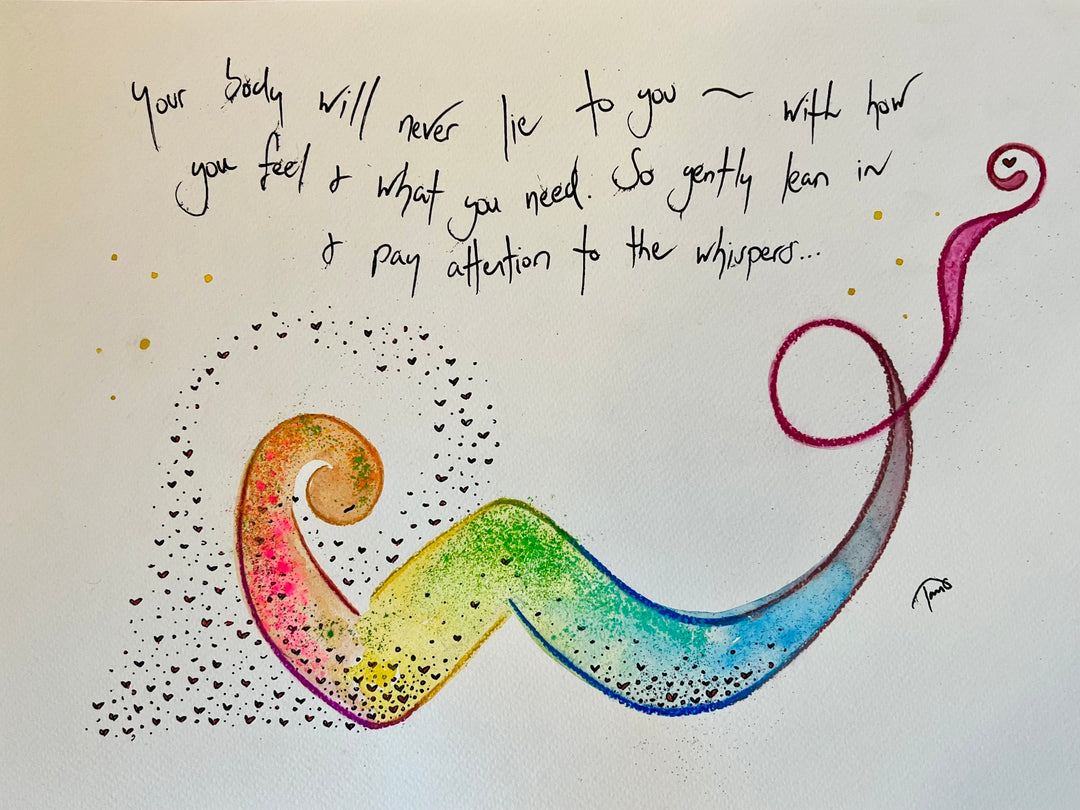 your body will never lie to you ~ with how
you feel & what you need. So gently lean in
& pay attention to the whispers...